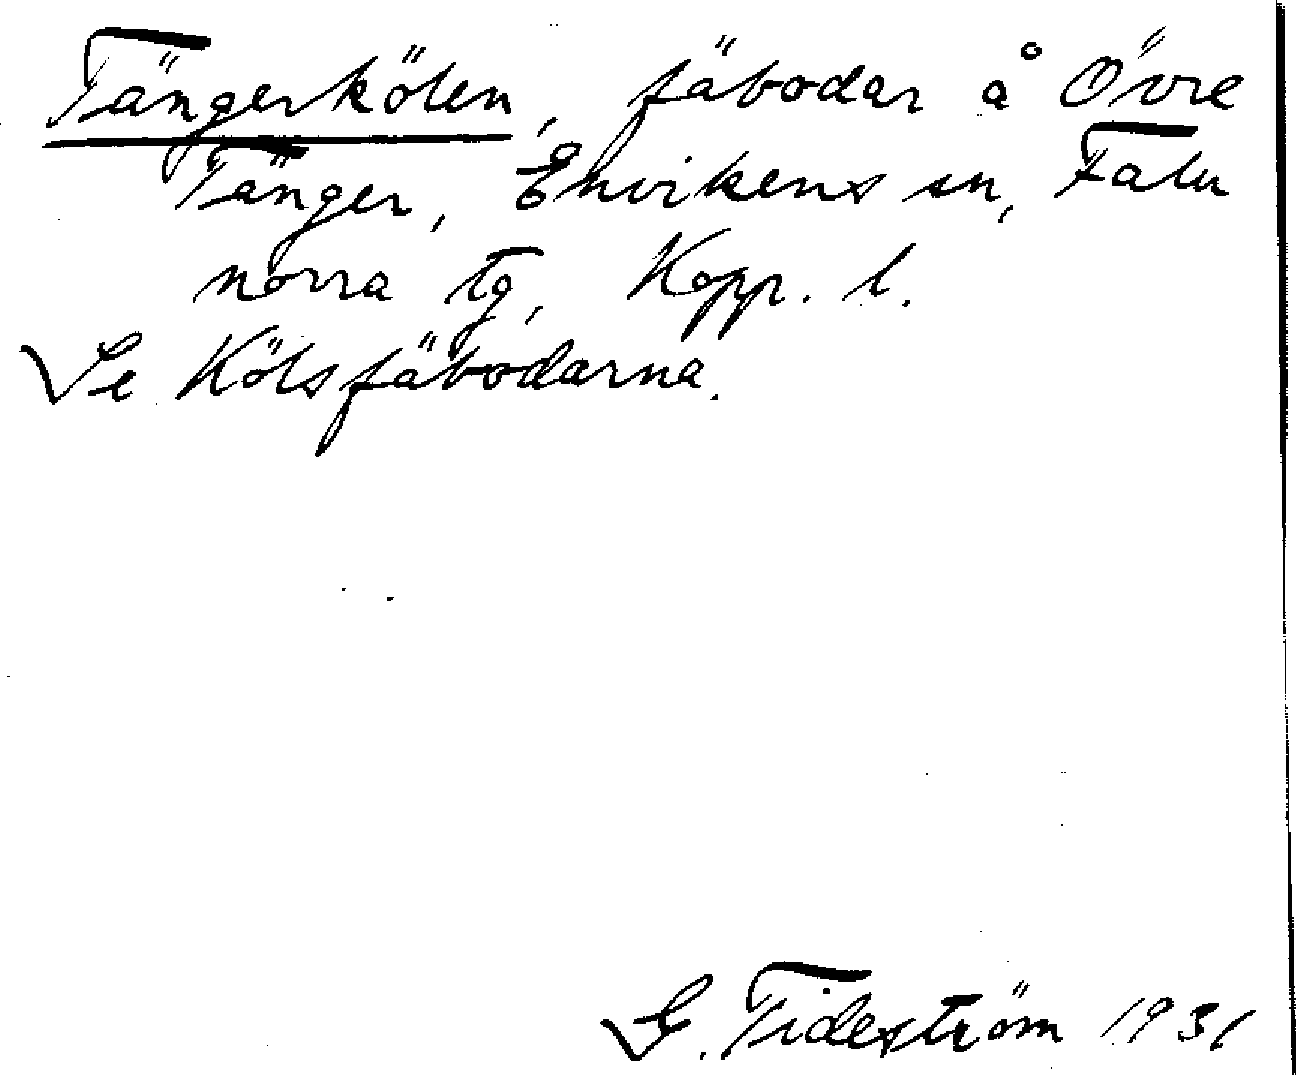 Tängerkölen, fäbodar å Övre
Tänger, Envikens sn, Falu
norra tg, Kopp. l.
Se Kölsfäbodarna.
G. Tideström 1931